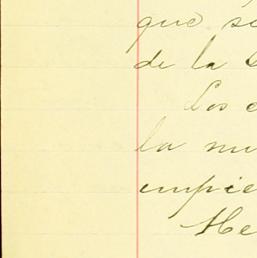 que se
de la
Los
la mu
empie
He